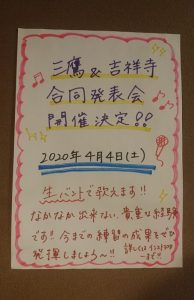 三鷹&吉祥寺
合同発表会
開催決定!!
2020年4月4日(土)
生バンドで歌えます!!
なかなか出来ない貴重な経験
です!!今までの練習の成果をぜひ
発揮しましょう〜!!
詳しくは
まで!!